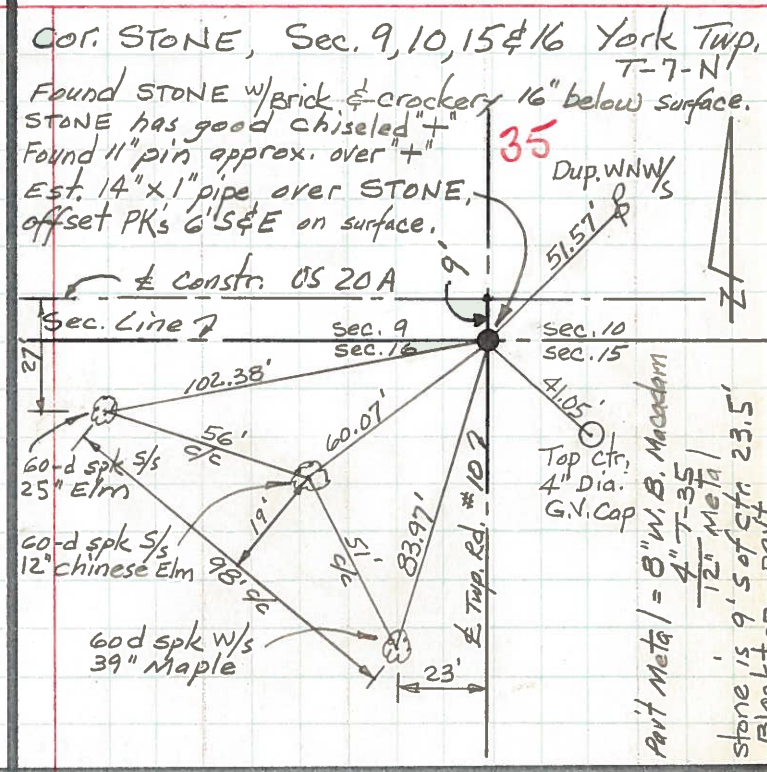 Cor. STONE, Sec. 9,10,15&16 York Twp.
T-7-N
Found STONE w/Brick & crockery 16" below surface.
STONE has good chiseled "+"
Found 11" pin approx. over "+"
Est. 14" x 1" pipe over STONE,
offset PK's 6' S&E on surface.
35
Dup. WNW/s
51.57'
9'
℄ Constr. US 20A
Sec. Line
27'
Sec. 9
Sec. 10
Sec. 16
Sec. 15
102.38'
60.07'
41.05'
56'
c/c
60-d spk S/s
25" Elm
Top Ctr,
4" Dia.
G.V. Cap
60-d spk S/s
12" chinese Elm
19'
98' c/c
51'
c/c
83.97'
℄ Twp. Rd. #10
60d spk W/s
39" Maple
23'
Pav't Metal = 8" W.B. Macadam
4" T-35
12" Metal
Stone is 9' S of Ctr. 23.5'